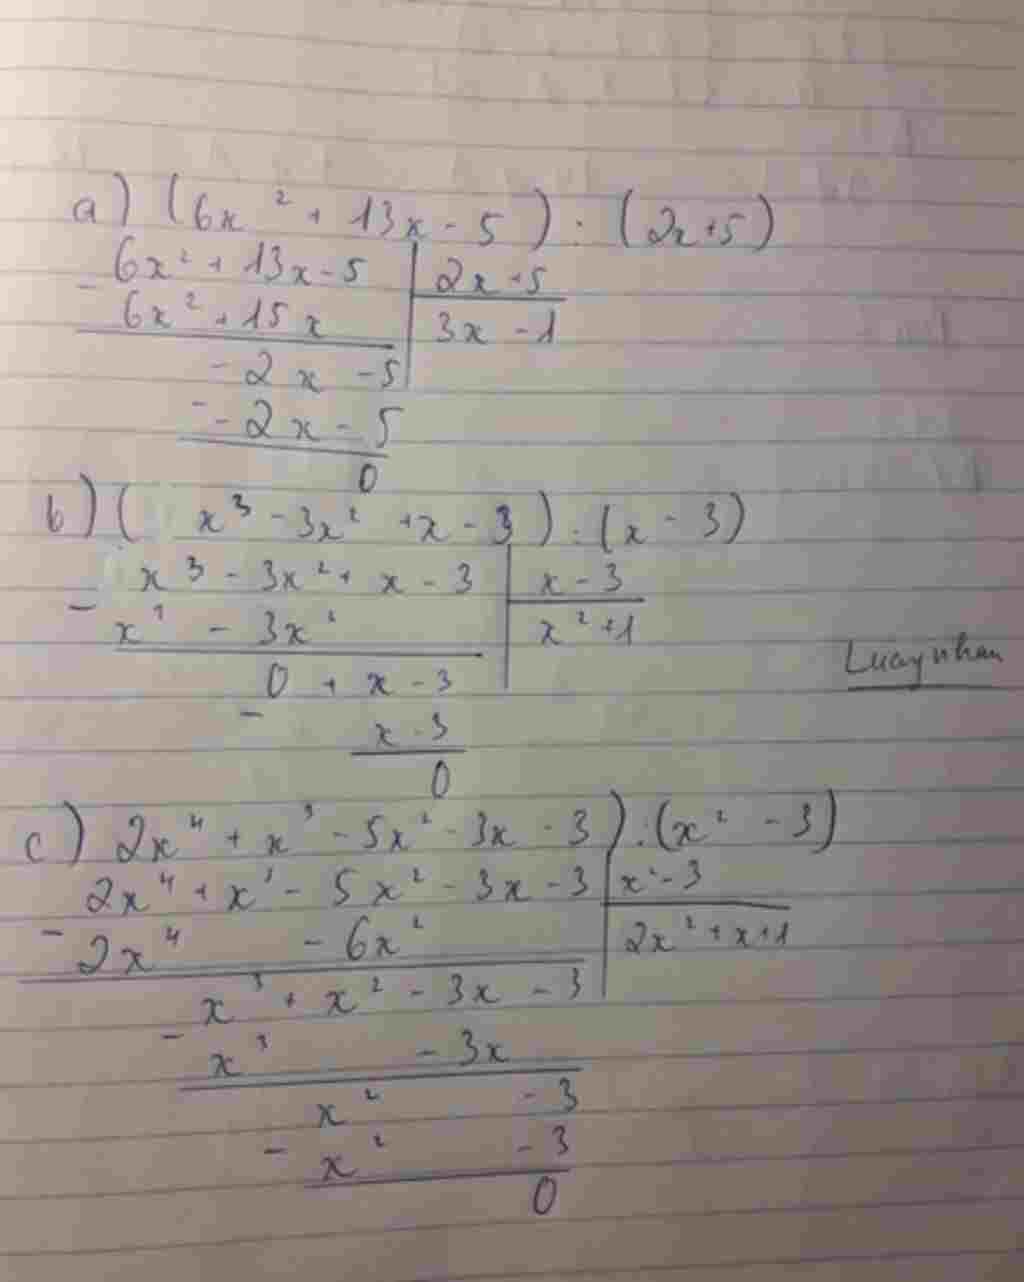 a) (6x² + 13x - 5) : (2x+5)
6x² + 13x - 5 | 2x + 5
- 6x² + 15x | 3x - 1
- 2x - 5
- - 2x - 5
0
b) ( x³ - 3x² + x - 3) : (x - 3)
x³ - 3x² + x - 3 | x - 3
- x³ - 3x² | x² + 1
Luaynhan
0 + x - 3
- x - 3
0
c) 2x⁴ + x³ - 5x² - 3x - 3) : (x² - 3)
2x⁴ + x³ - 5x² - 3x - 3 | x² - 3
- 2x⁴ - 6x² | 2x² + x + 1
x³ + x² - 3x - 3
- x³ - 3x
x² - 3
- x² - 3
0